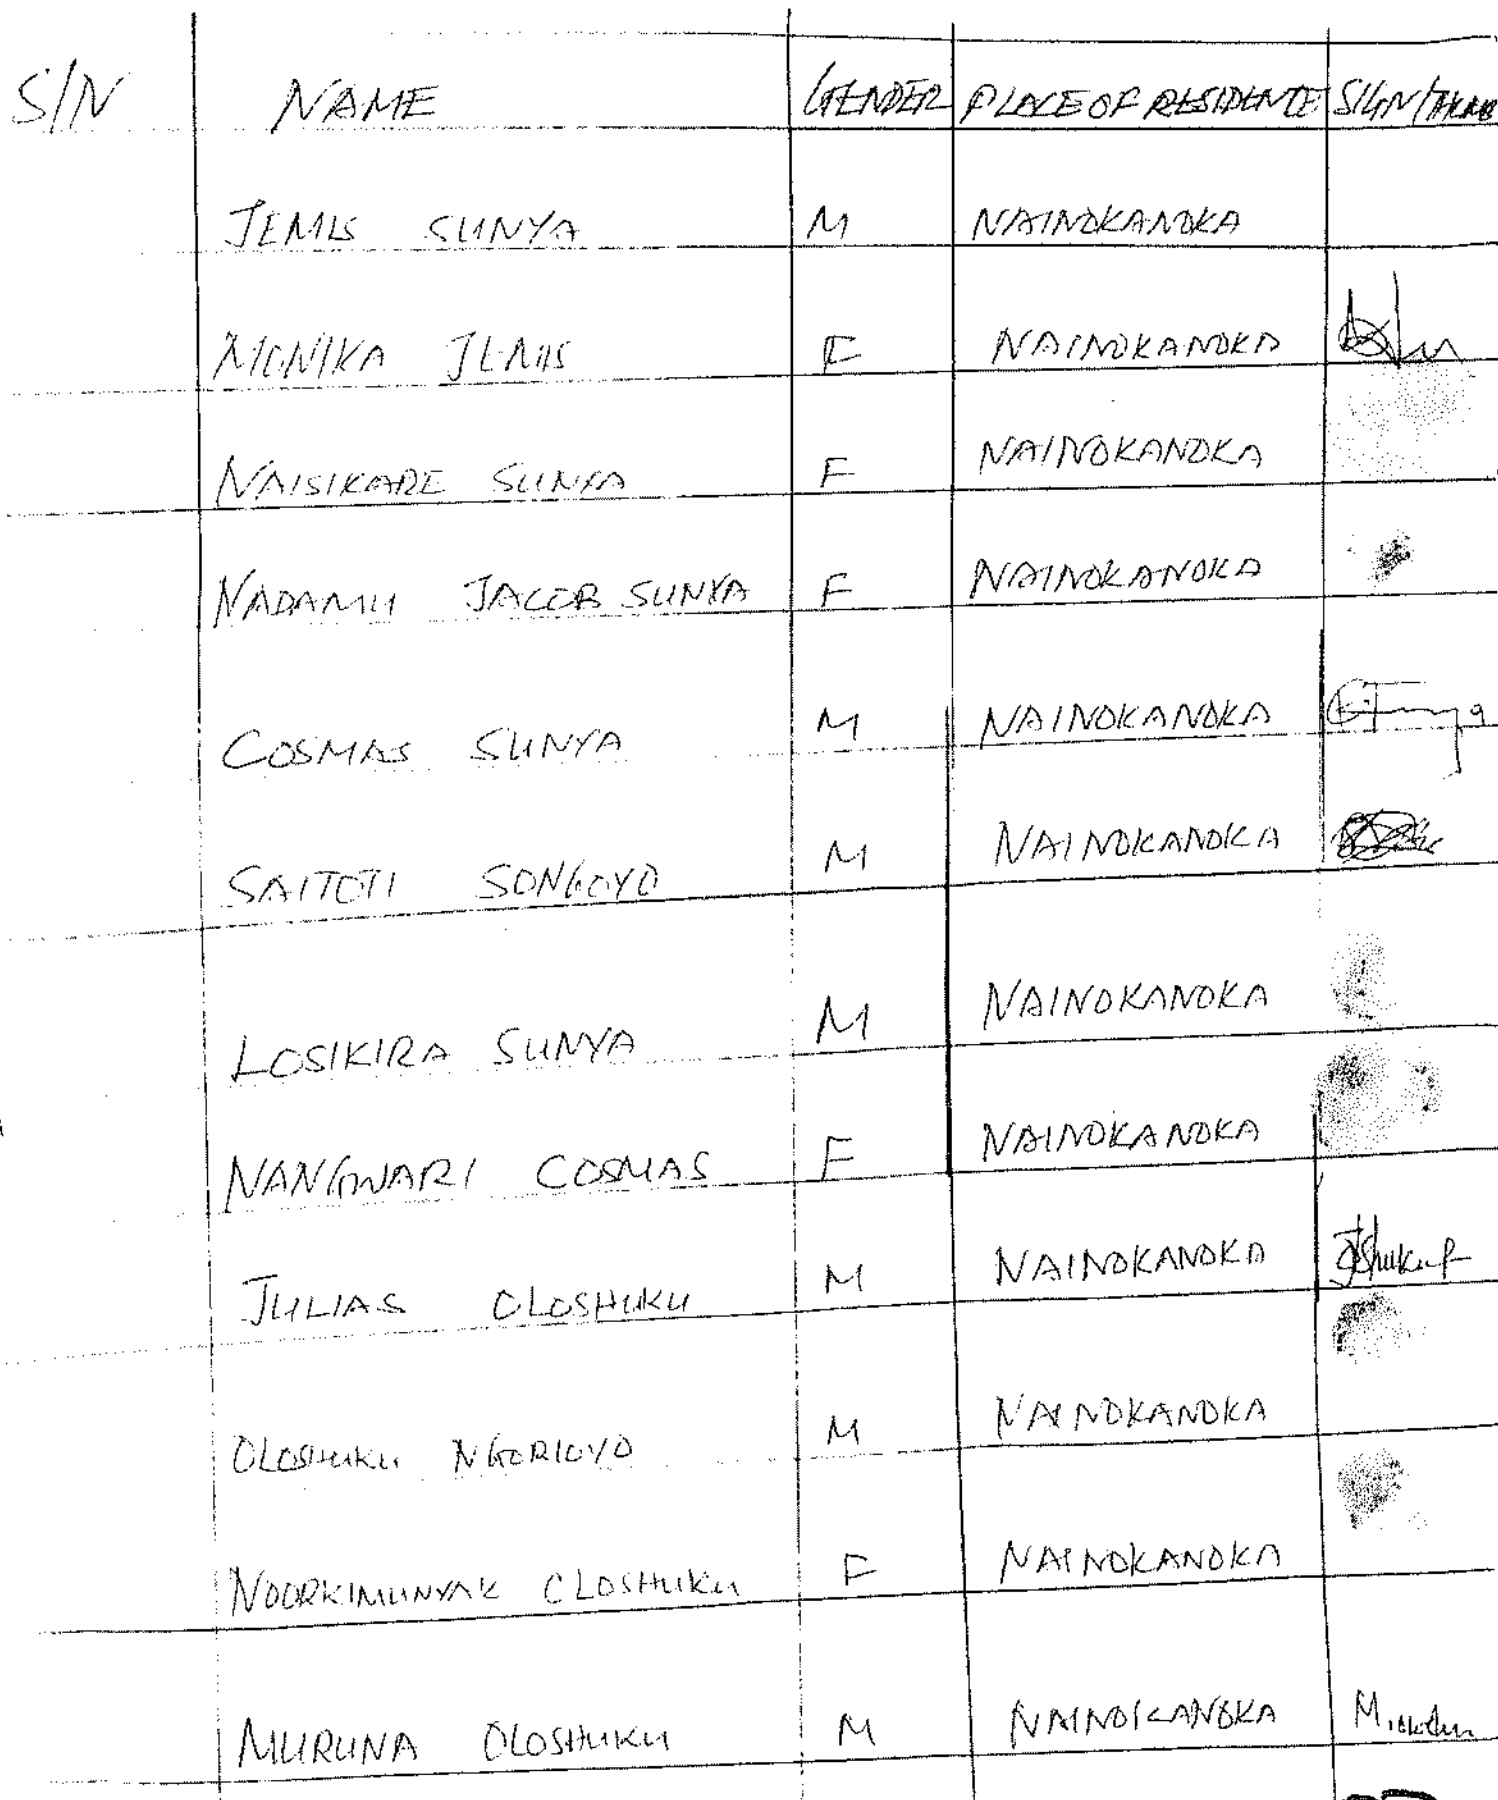 S/N NAME GENDER PLACE OF RESIDENCE SIGN/THUMB
JEMIS SUNYA M NAINOKANOKA
MONIKA JEMIS F NAINOKANOKA
NAISIKARE SUNYA F NAINOKANOKA
NADAMU JACOB SUNYA F NAINOKANOKA
COSMAS SUNYA M NAINOKANOKA
SAITOTI SONGOYO M NAINOKANOKA
LOSIKIRA SUNYA M NAINOKANOKA
NANGWARI COSMAS F NAINOKANOKA
JULIAS OLOSHUKU M NAINOKANOKA
OLOSHUKU NGORIOYO M NAINOKANOKA
NOORKIMUNYAK OLOSHUKU F NAINOKANOKA
MURUNA OLOSHUKU M NAINOKANOKA